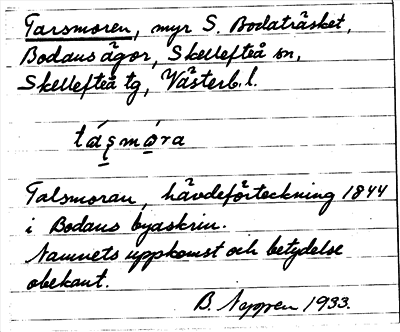 Tarsmoren, myr S. Bodaträsket,
Bodans ägor, Skellefteå sn,
Skellefteå tg, Västerb. l.
táşmo̱ra
Talsmoran, hävdeförteckning 1844
i Bodans byaskrin.
Namnets uppkomst och betydelse
obekant.
1933.